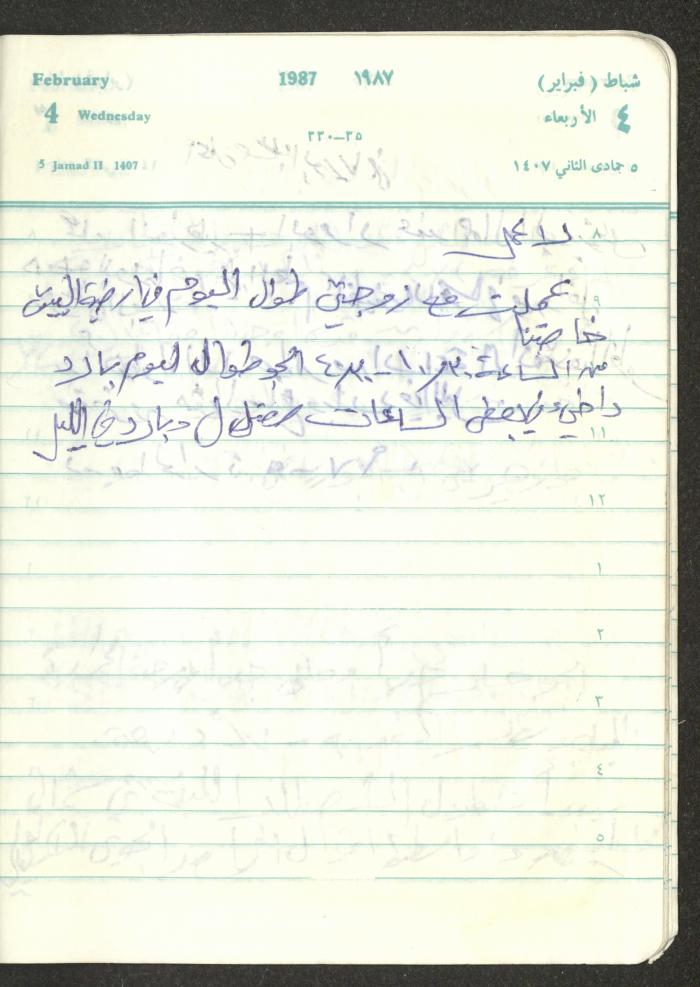 February 1987 ١٩٨٧ شباط (فبراير)
4 Wednesday الأربعاء ٤
٣٥-٣٣٠
5 Jamad II 1407 ٥ جمادى الثاني ١٤٠٧
٨ لا عمل
٩ عملت مع زوجتي طوال اليوم في ارضية البيت
خاصتنا
من الساعة ١٠٫٣٠ - ٤٫٣٠ الجو طوال اليوم بارد
وفي بعض الساعات وبارد في الليل
١١
١٢
١
٢
٣
٤
٥